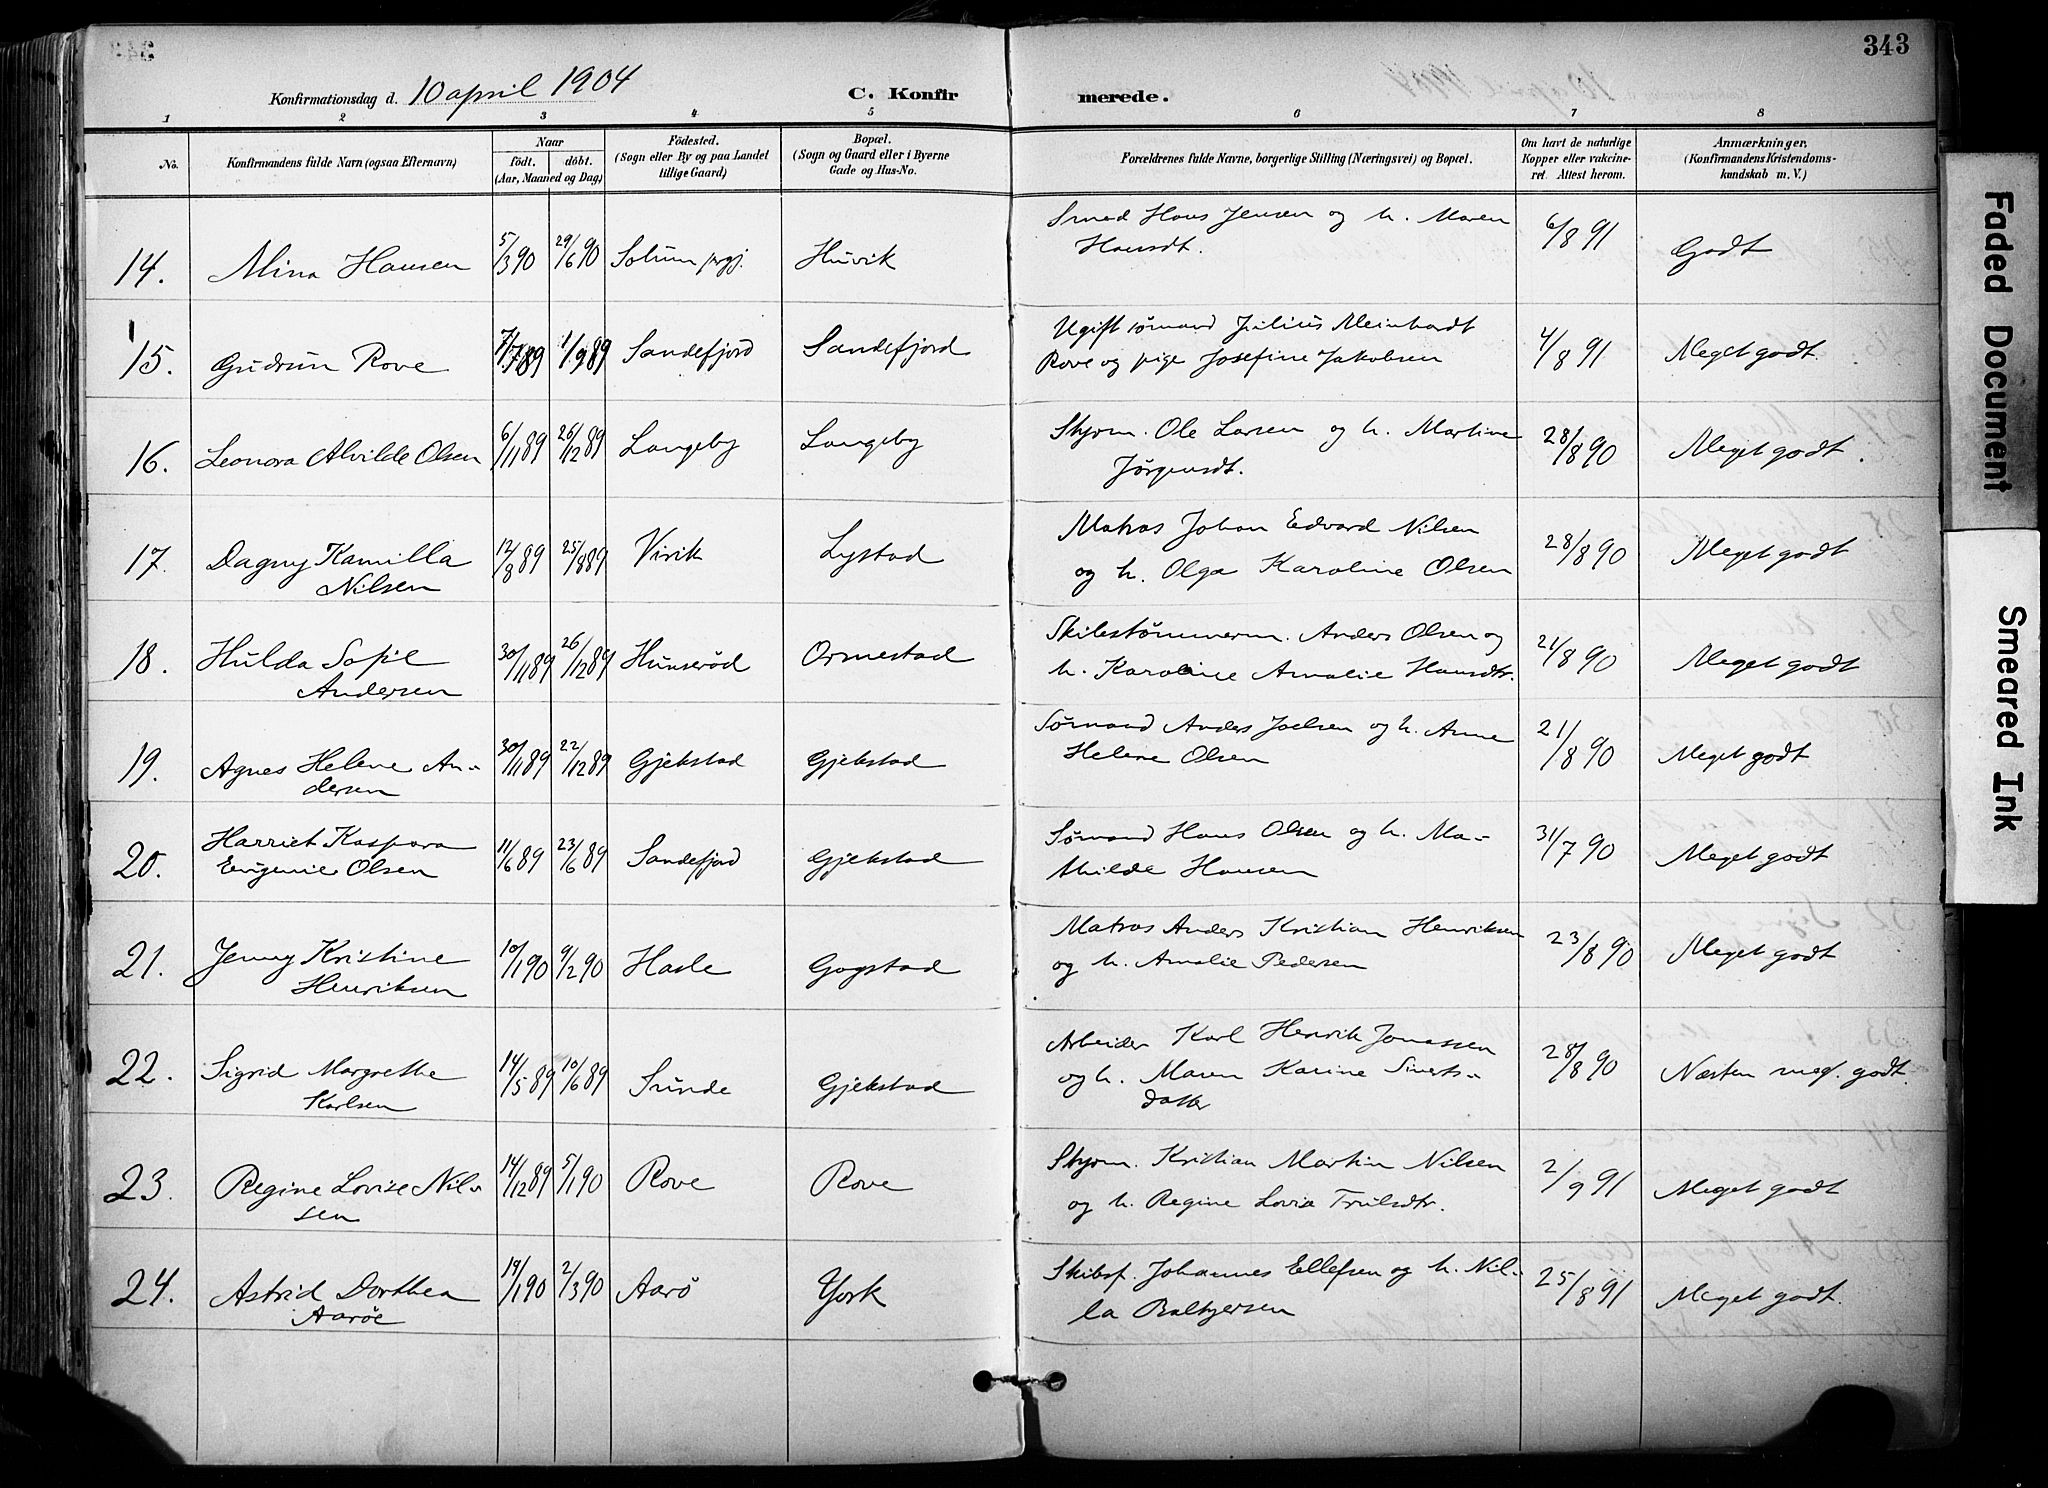 343
Konfirmationsdag d. 10 april 1904
C. Konfirmerede.
1 2 3 4 5 6 7 8
No.
Konfirmandens fulde Navn (ogsaa Efternavn)
Naar
født. døbt.
(Aar, Maaned og Dag)
Fødested.
(Sogn eller By og paa Landet
tillige Gaard)
Bopæl.
(Sogn og Gaard eller i Byerne
Gade og Hus-No.
Forældrenes fulde Navne, borgerlige Stilling (Næringsvei) og Bopæl.
Om havt de naturlige
Kopper eller vakcine-
ret. Attest herom.
Anmærkninger.
(Konfirmandens Kristendoms-
kundskab m. V.)
14. Mina Hansen 5/3 90 29/6 90 Solum prgj. Huvik Smed Hans Jensen og h. Maren
Hansdt. 6/8 91 Godt
15. Gudrun Rove 7/7 89 1/9 89 Sandefjord Sandefjord Ugift sømand Julius Meinhardt
Rove og pige Josefine Jakobsen 4/8 91 Meget godt.
16. Leonora Alvilde Olsen 6/11 89 26/12 89 Langeby Langeby Skjøm. Ole Larsen og h. Martine
Jørgensdt. 28/8 90 Meget godt.
17. Dagny Kamilla
Nilsen 12/8 89 25/8 89 Virik Lystad Matros Johan Edvard Nilsen
og h. Olga Karoline Olsen 28/8 90 Meget godt
18. Hulda Sofie
Andersen 30/11 89 26/12 89 Hunserød Ormestad Skibstømmerm. Anders Olsen og
h. Karoline Amalie Hansdtr. 21/8 90 Meget godt
19. Agnes Helene An-
dersen 30/11 89 22/12 89 Gjekstad Gjekstad Sømand Anders Joelsen og h. Anne
Helene Olsen 21/8 90 Meget godt
20. Harriet Kaspara
Eugenie Olsen 11/6 89 23/6 89 Sandefjord Gjekstad Sømand Hans Olsen og h. Ma-
thilde Hansen 31/7 90 Meget godt
21. Jenny Kristine
Henriksen 10/1 90 9/2 90 Hasle Gogstad Matros Anders Kristian Henriksen
og h. Amalie Pedersen 23/8 90 Meget godt
22. Sigrid Margrethe
Karlsen 14/5 89 10/6 89 Sunde Gjekstad Arbeider Karl Henrik Jonassen
og h. Maren Karine Siverts-
datter 28/8 90 Næsten meg. godt.
23. Regine Lovise Nil-
sen 14/12 89 5/1 90 Rove Rove Skjøm. Kristian Martin Nilsen
og h. Regine Lovise Trulsdtr. 2/9 91 Meget godt
24. Astrid Dorthea
Aarøe 19/1 90 2/3 90 Aarø York Skibsf. Johannes Ellefsen og h. Nil-
la 25/8 91 Meget godt.
Faded Document
Smeared Ink